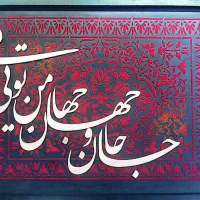 جان و جهان من تویی